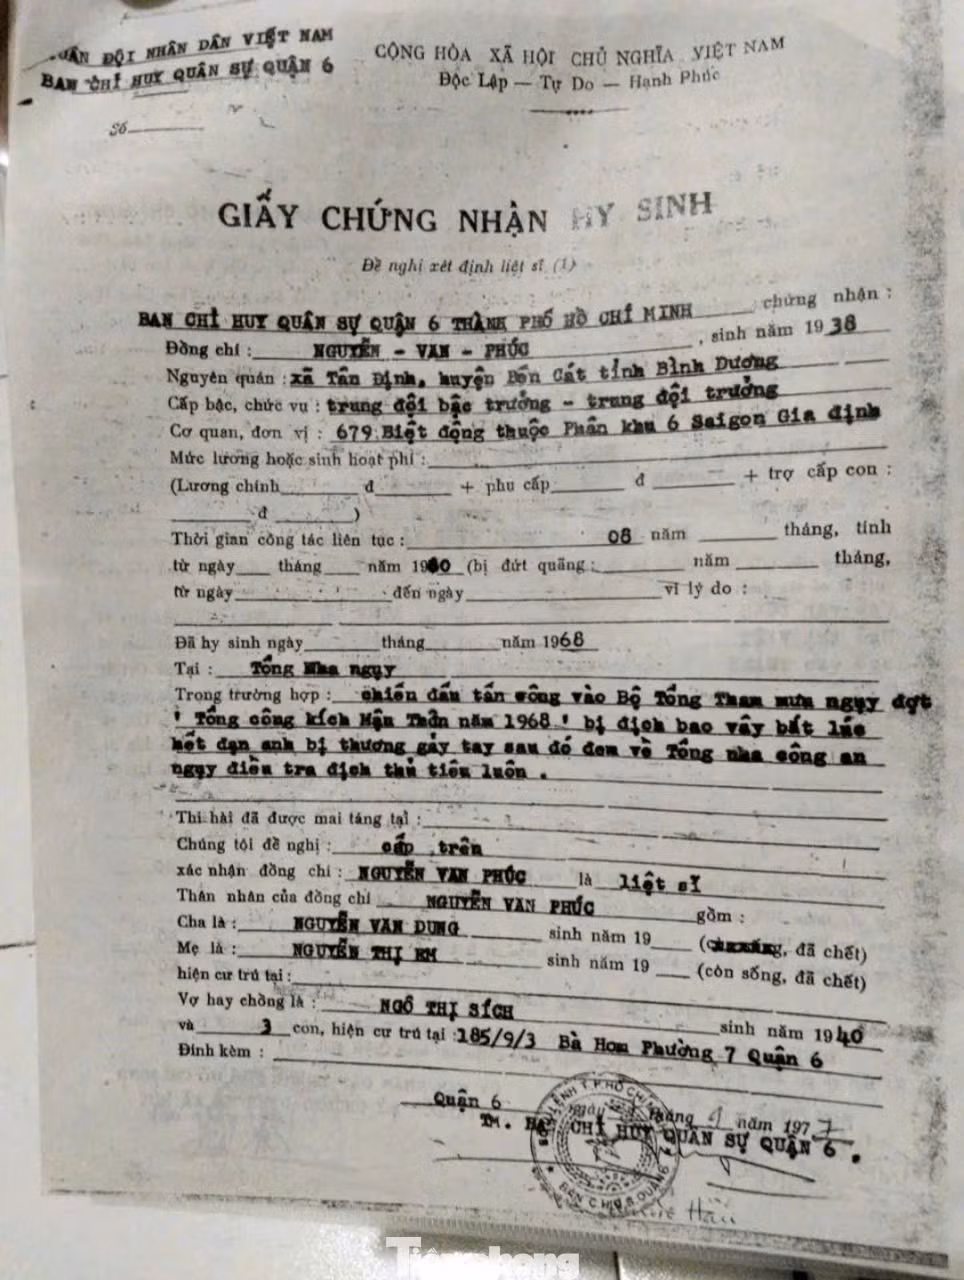 QUÂN ĐỘI NHÂN DÂN VIỆT NAM
BAN CHỈ HUY QUÂN SỰ QUẬN 6
Số
CỘNG HÒA XÃ HỘI CHỦ NGHĨA VIỆT NAM
Độc Lập — Tự Do — Hạnh Phúc
GIẤY CHỨNG NHẬN HY SINH
Đề nghị xét định liệt sĩ (1)
BAN CHỈ HUY QUÂN SỰ QUẬN 6 THÀNH PHỐ HỒ CHÍ MINH chứng nhận :
Đồng chí : NGUYỄN - VAN - PHÚC , sinh năm 1938
Nguyên quán : xã Tân Định, huyện Bến Cát tỉnh Bình Dương
Cấp bậc, chức vụ : trung đội bậc trưởng - trung đội trưởng
Cơ quan, đơn vị : 679 Biệt động thuộc Phân khu 6 Saigon Gia định
Mức lương hoặc sinh hoạt phí :
(Lương chính đ + phụ cấp đ + trợ cấp con :
đ )
Thời gian công tác liên tục : 08 năm tháng, tính
từ ngày tháng năm 1960 (bị đứt quãng : năm tháng,
từ ngày đến ngày vì lý do :
Đã hy sinh ngày tháng năm 1968
Tại : Tổng Nha ngụy
Trong trường hợp : chiến đấu tấn công vào Bộ Tổng Tham mưu ngụy đợt
' Tổng công kích Mậu Thân năm 1968 ' bị địch bao vây bắt lúc
hết đạn anh bị thương gảy tay sau đó đem về Tổng nha công an
ngụy điều tra địch thủ tiêu luôn .
Thi hài đã được mai táng tại :
Chúng tôi đề nghị : cấp trên
xác nhận đồng chí : NGUYỄN VAN PHÚC là liệt sĩ
Thân nhân của đồng chí NGUYỄN VAN PHÚC gồm :
Cha là : NGUYỄN VAN DUNG sinh năm 19 ( , đã chết)
Mẹ là : NGUYỄN THỊ EM sinh năm 19 (còn sống, đã chết)
hiện cư trú tại :
Vợ hay chồng là : NGÔ THỊ SÍCH sinh năm 1940
và 3 con, hiện cư trú tại 185/9/3 Bà Hom Phường 7 Quận 6
Đính kèm :
Quận 6 ngày tháng 9 năm 1977
TM. BAN CHỈ HUY QUÂN SỰ QUẬN 6 .
Tiền phong